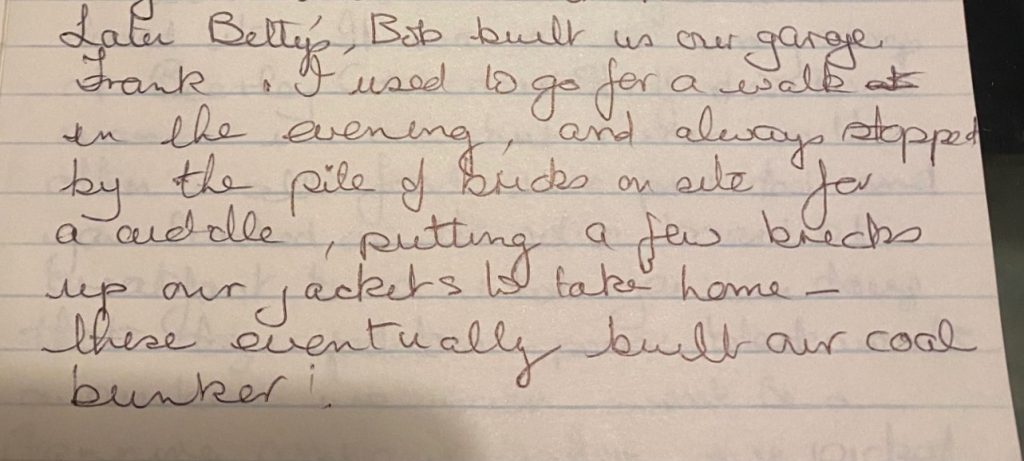 Later Betty's, Bob built us our garage.
Frank & I used to go for a walk at
in the evening, and always stopped
by the pile of bricks on site for
a cuddle, putting a few bricks
up our jackets to take home –
these eventually built our coal
bunker!